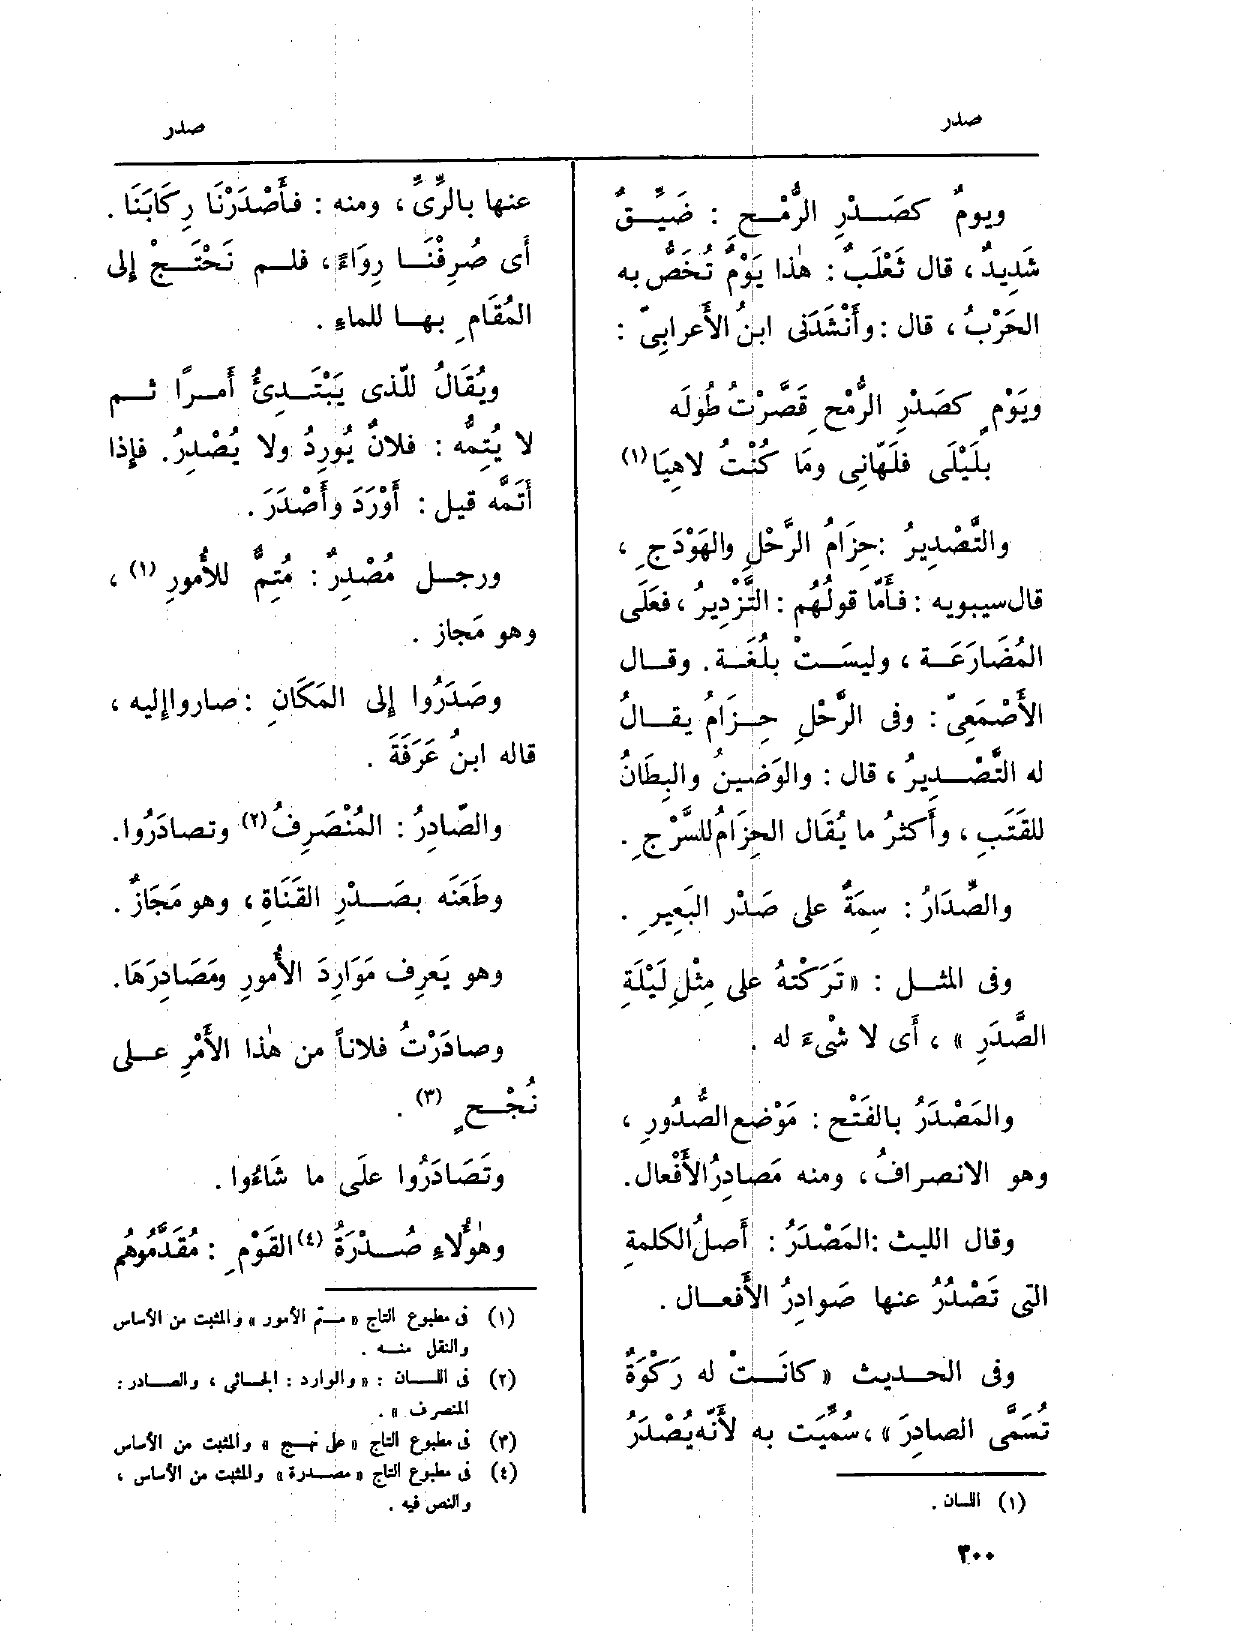 صدر
صدر
ويومٌ كصَدْرِ الرُّمْحِ : ضَيِّقٌ
شَدِيدٌ ، قال ثَعْلَبٌ : هٰذا يَوْمٌ تُخَصُّ به
الحَرْبُ ، قال : وأَنْشَدَنى ابنُ الأَعرابىّ :
ويَوْمٍ كصَدْرِ الرُّمْحِ قَصَّرْتُ طُولَه
بِلَيْلَى فلَهّانِى ومَا كُنْتُ لاهِيَا (١)
والتَّصْدِيرُ : حِزَامُ الرَّحْلِ والهَوْدَجِ ،
قال سيبويه : فأَمّا قولُهُم : التَّزْدِيرُ ، فعَلَى
المُضَارَعَة ، وليسَتْ بلُغَة . وقال
الأَصْمَعِىّ : وفى الرَّحْلِ حِزَامُ يقالُ
له التَّصْدِيرُ ، قال : والوَضِينُ والبِطَانُ
للقَتَبِ ، وأَكثرُ ما يُقَال الحِزَامُ للسَّرْجِ .
والصِّدَارُ : سِمَةٌ على صَدْر البَعِيرِ .
وفى المثل : «تَرَكْتهُ على مِثْلِ لَيْلَةِ
الصَّدَرِ » ، أَى لا شْىءَ له .
والمَصْدَرُ بالفَتْح : مَوْضع الصُّدُورِ ،
وهو الانصرافُ ، ومنه مَصادِرُ الأَفْعال .
وقال الليث : المَصْدَرُ : أَصلُ الكلمةِ
التى تَصْدُرُ عنها صَوادِرُ الأَفعال .
وفى الحديث «كانَتْ له رَكْوَةٌ
تُسَمَّى الصادِرَ » ، سُمِّيَت به لأَنّه يُصْدَرُ
(١) اللسان .
عنها بالرِّىِّ ، ومنه : فأَصْدَرْنَا رِكَابَنَا .
أَى صُرِفْنَا رِوَاءً ، فلم نَحْتَجْ إلى
المُقَامِ بها للماءِ .
ويُقَالُ للّذى يَبْتَدِئُ أَمرًا ثم
لا يُتِمُّه : فلانٌ يُورِدُ ولا يُصْدِرُ . فإِذا
أَتَمَّه قيل : أَوْرَدَ وأَصْدَرَ .
ورجل مُصْدِرٌ : مُتِمٌّ للأُمورِ (١) ،
وهو مَجاز .
وصَدَرُوا إلى المَكَانِ : صاروا إليه ،
قاله ابنُ عَرَفَةَ .
والصّادِرُ : المُنْصَرِفُ (٢) وتصادَرُوا.
وطَعَنَه بصَدْرِ القَنَاةِ ، وهو مَجَازٌ .
وهو يَعرِف مَوَارِدَ الأُمورِ ومَصَادِرَهَا .
وصادَرْتُ فلاناً من هٰذا الأَمْرِ على
نُجْحٍ (٣) .
وتَصَادَرُوا علَى ما شَاءُوا .
وهٰؤُلاءِ صُدْرَةُ (٤) القَوْمِ : مُقَدَّمُوهُم
(١) فى مطبوع التاج «متمّ الأمور » والمثبت من الأساس
والنقل منه .
(٢) فى اللسان : «والوارد : الجائى ، والصادر :
المنصرف » .
(٣) فى مطبوع التاج «على نهج » والمثبت من الأساس
(٤) فى مطبوع التاج «مصدرة » والمثبت من الأساس ،
والنص فيه .
٣٠٠